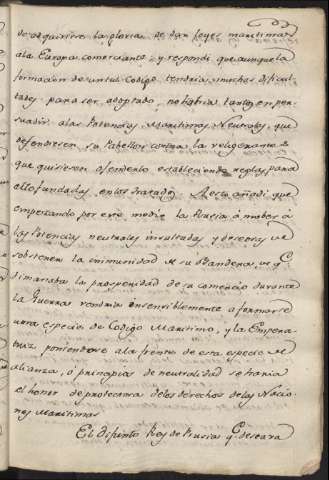 de adquirirse la gloria de dar leyes maritimas
a la Europa comerciante; y respondi que aunque la
formacion de un tal Codigo tendria muchas dificul-
tades para ser adoptado, no habria tantas en per-
suadir a las Potencias Maritimas Neutrales, que
defendiesen su Pabellon contra los veligerantes
que quisiesen ofenderlo estableciendo reglas para
ello fundadas en los tratados. A esto añadi que
empezando por este medio la Rusia á mober á
las Potencias neutrales insultadas y deseosas de
sobstener la inmunidad de su Bandera, de q.e
dimanaba la prosperidad de su comercio durante
la Guerra vendria insensiblemente a formarse
una especie de Codigo Maritimo, y la Empera-
triz, poniendose a la frente de esta especie de
alianza, ó principios de neutralidad se haria
el honor de protectora de los derechos de las Nacio-
nes Maritimas
El difunto Rey de Prusia q.e deseara